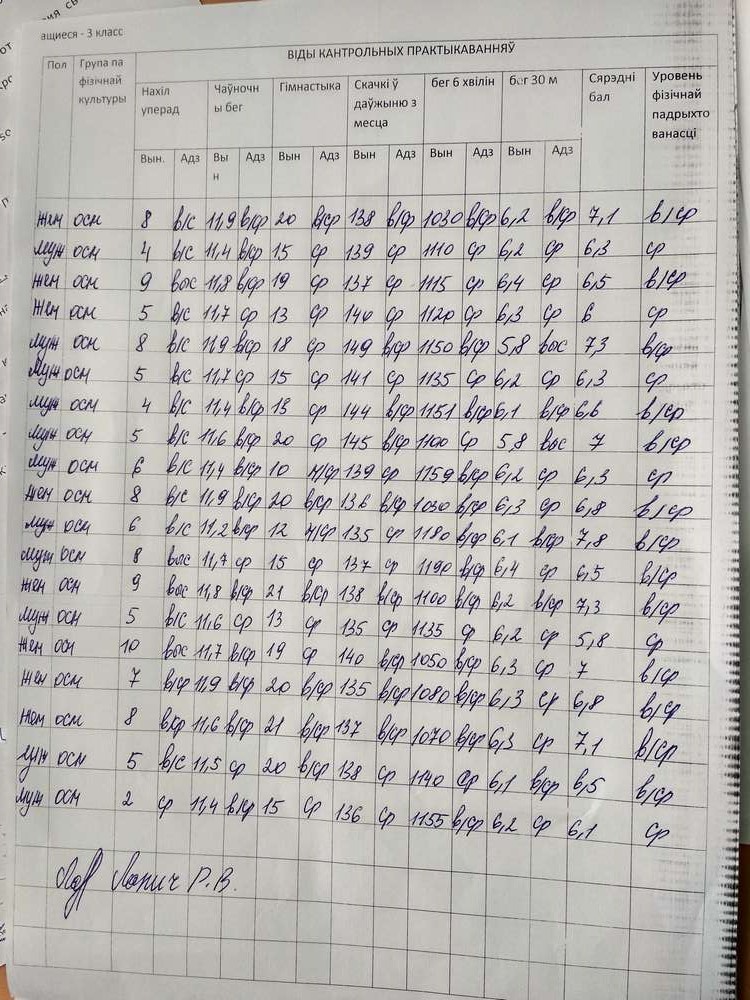 ащиеся - 3 класс
ВІДЫ КАНТРОЛЬНЫХ ПРАКТЫКАВАННЯЎ
Пол Група па фізічнай культуры Нахіл уперад Чаўночны бег Гімнастыка Скачкі ў даўжыню з месца бег 6 хвілін бег 30 м Сярэдні бал Уровень фізічнай падрыхтованасці
Вын. Адз Вын Адз Вын Адз Вын Адз Вын Адз Вын Адз
жен осн 8 в/с 11,9 в/ср 20 в/ср 138 в/ср 1030 в/ср 6,2 в/ср 7,1 в/ср
муж осн 4 в/с 11,4 в/ср 15 ср 139 ср 1110 ср 6,2 ср 6,3 ср
жен осн 9 выс 11,8 в/ср 19 ср 137 ср 1115 ср 6,4 ср 6,5 в/ср
жен осн 5 в/с 11,7 ср 13 ср 140 ср 1120 ср 6,3 ср 6 ср
муж осн 8 в/с 11,9 в/ср 18 ср 149 в/ср 1150 в/ср 5,8 выс 7,3 в/ср
муж осн 5 в/с 11,7 ср 15 ср 141 ср 1135 ср 6,2 ср 6,3 ср
муж осн 4 в/с 11,4 в/ср 18 ср 144 в/ср 1151 в/ср 6,1 в/ср 6,6 в/ср
муж осн 5 в/с 11,6 в/ср 20 ср 145 в/ср 1100 ср 5,8 выс 7 в/ср
муж осн 6 в/с 11,4 в/ср 10 н/ср 139 ср 1159 в/ср 6,2 ср 6,3 ср
жен осн 8 в/с 11,9 в/ср 20 в/ср 136 в/ср 1030 в/ср 6,3 ср 6,8 в/ср
муж осн 6 в/с 11,2 в/ср 12 н/ср 135 ср 1180 в/ср 6,1 в/ср 7,8 в/ср
муж осн 8 выс 11,7 ср 15 ср 137 ср 1190 в/ср 6,4 ср 6,5 в/ср
жен осн 9 выс 11,8 в/ср 21 в/ср 138 в/ср 1100 в/ср 6,2 в/ср 7,3 в/ср
муж осн 5 в/с 11,6 ср 13 ср 135 ср 1135 ср 6,2 ср 5,8 ср
жен осн 10 выс 11,7 в/ср 19 ср 140 в/ср 1050 в/ср 6,3 ср 7 в/ср
жен осн 7 в/ср 11,9 в/ср 20 в/ср 135 в/ср 1080 в/ср 6,3 ср 6,8 в/ср
жен осн 8 в/ср 11,6 в/ср 21 в/ср 137 в/ср 1070 в/ср 6,3 ср 7,1 в/ср
муж осн 5 в/с 11,5 ср 20 в/ср 138 ср 1140 ср 6,1 в/ср 6,5 в/ср
муж осн 2 ср 11,4 в/ср 15 ср 136 ср 1155 в/ср 6,2 ср 6,1 ср
Р.В.